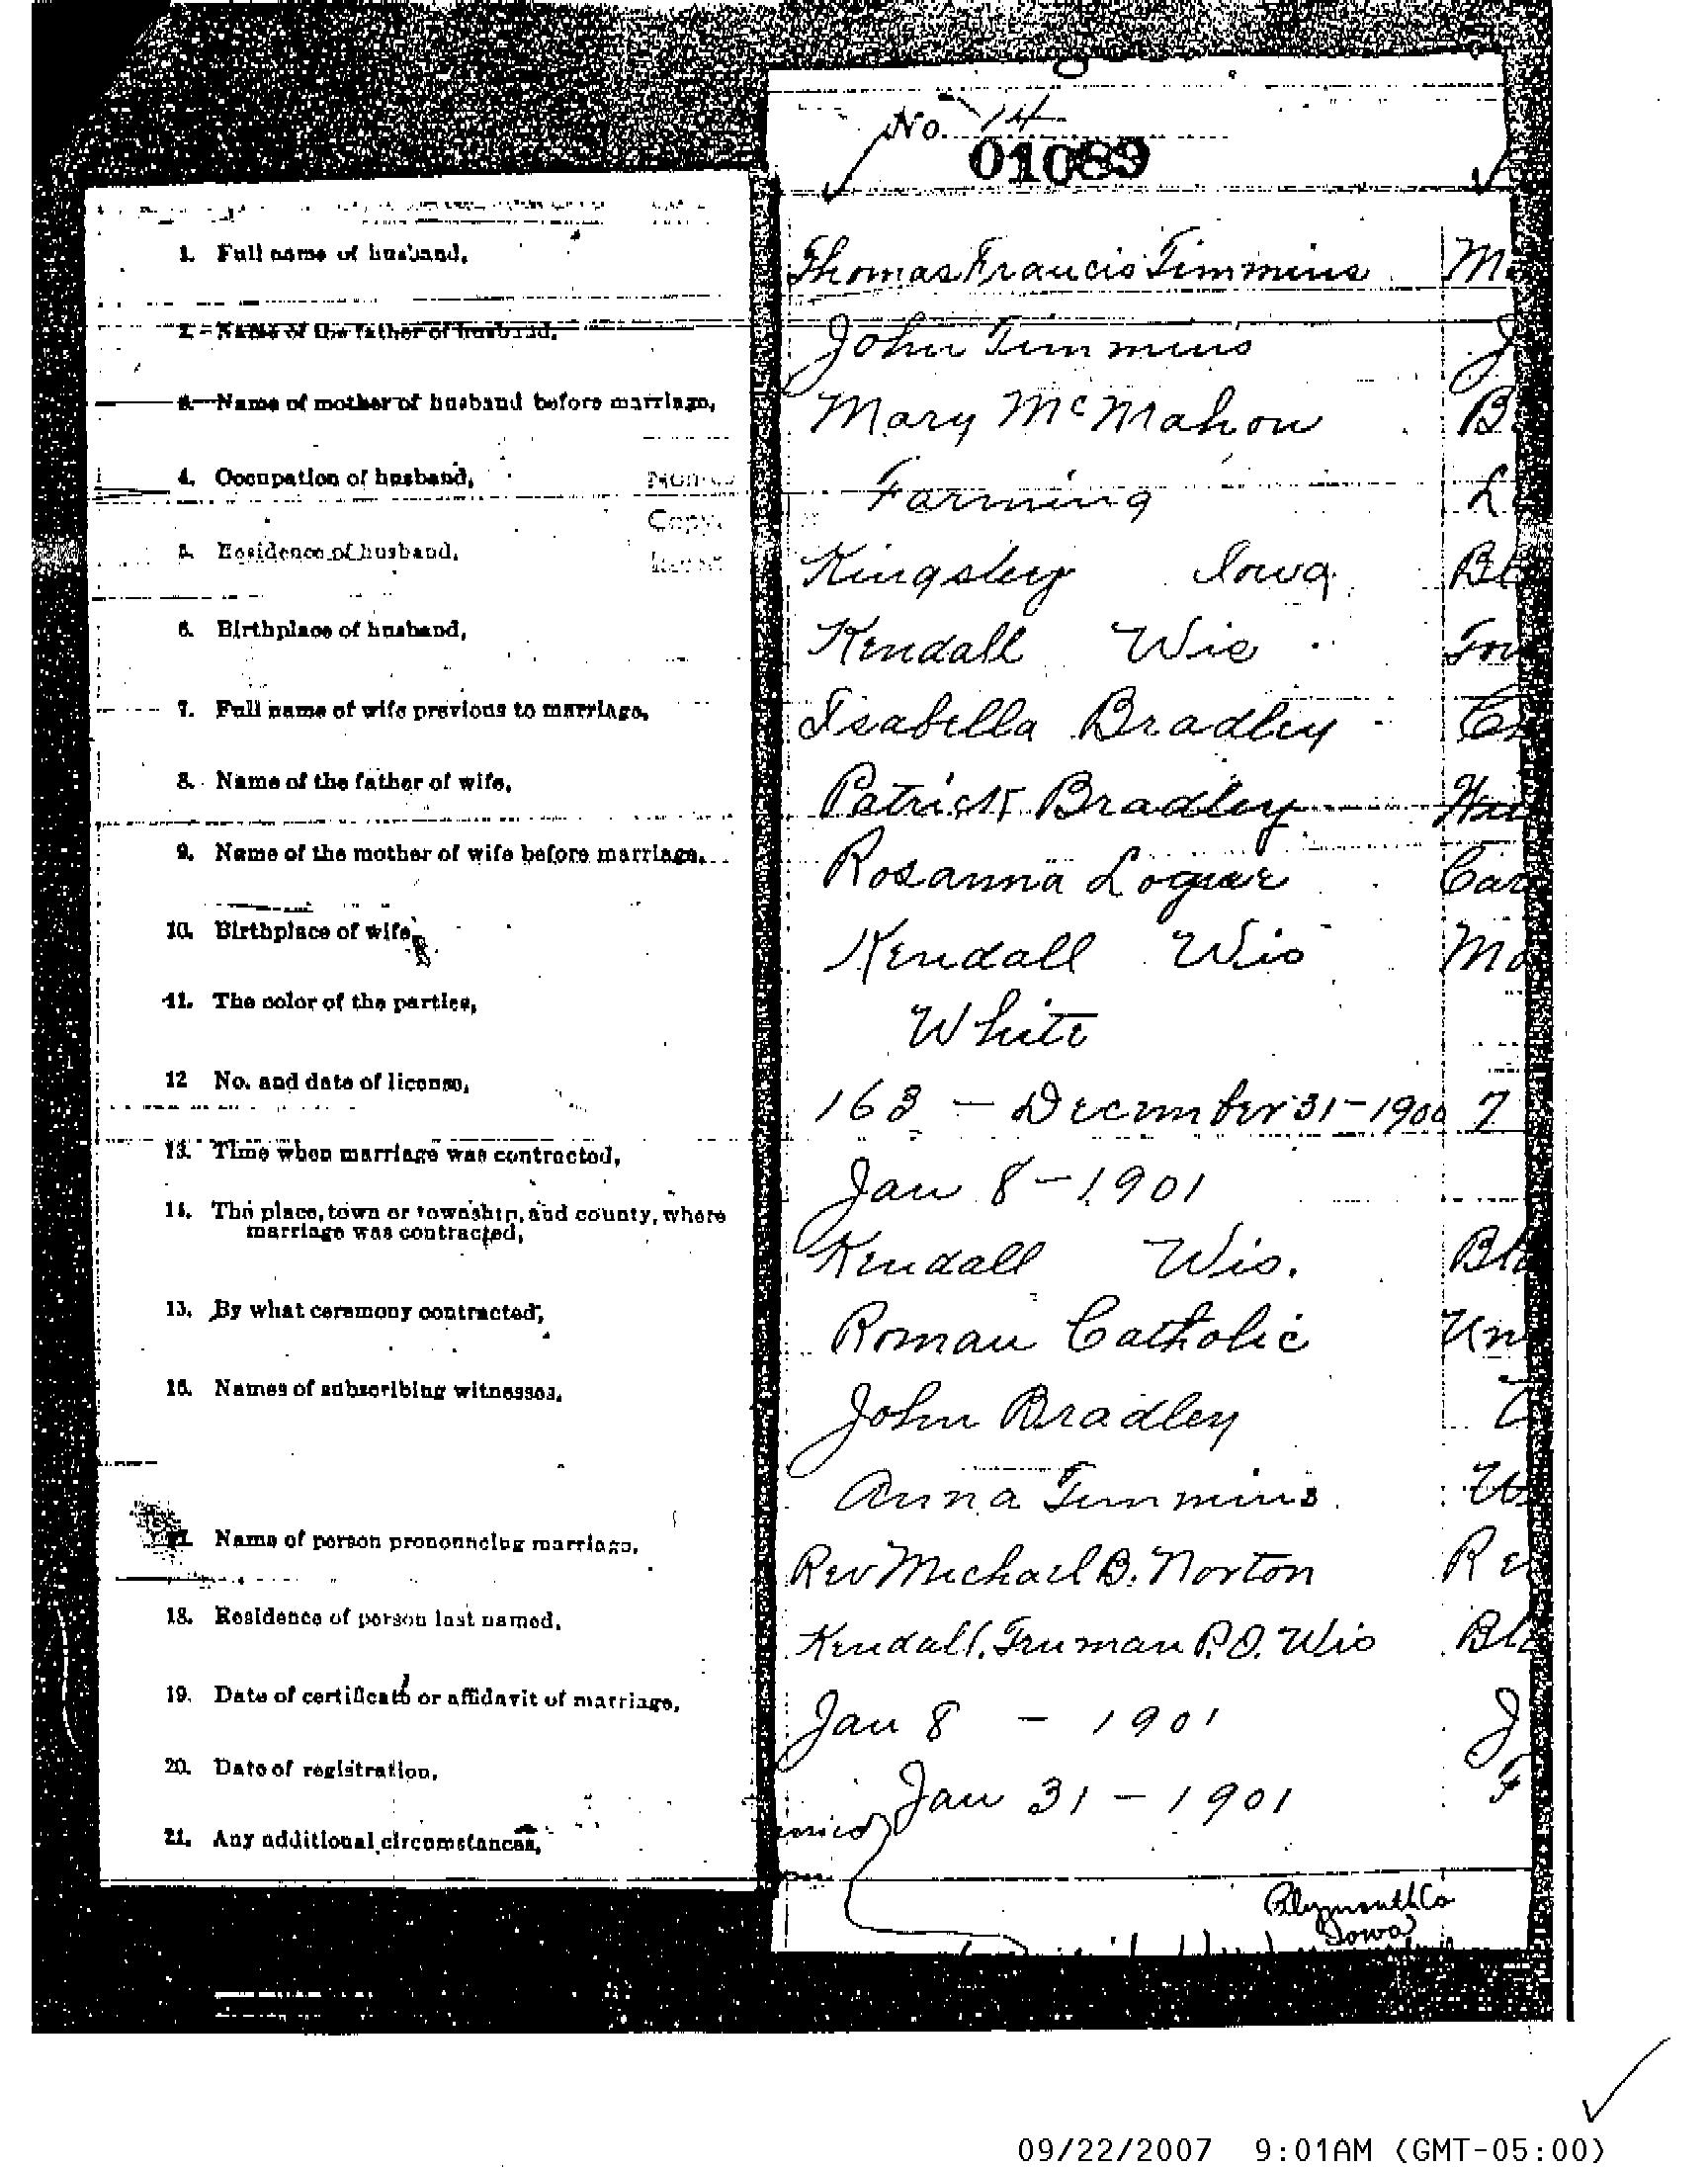 No. 14
01089
1. Full name of husband, Thomas Francis Timmins
2. Name of the father of husband, John Timmins
3. Name of mother of husband before marriage, Mary McMahon
4. Occupation of husband, Farming
Copy
5. Residence of husband, Kingsley Iowa
6. Birthplace of husband, Kendall Wis
7. Full name of wife previous to marriage, Isabella Bradley
8. Name of the father of wife, Patrick Bradley
9. Name of the mother of wife before marriage, Rosanna Logue
10. Birthplace of wife, Kendall Wis
11. The color of the parties, White
12 No. and date of license, 163 - December 31-1900 7
13. Time when marriage was contracted, Jan 8-1901
14. The place, town or township, and county, where
marriage was contracted, Kendall Wis.
15. By what ceremony contracted, Roman Catholic
16. Names of subscribing witnesses, John Bradley
Anna Timmins
17. Name of person pronouncing marriage, Rev Michael B. Norton
18. Residence of person last named, Kendall, Truman P.O. Wis
19. Date of certificate or affidavit of marriage, Jan 8 - 1901
20. Date of registration, Jan 31 - 1901
21. Any additional circumstances,
Plymouth Co
Iowa
09/22/2007 9:01AM (GMT-05:00)